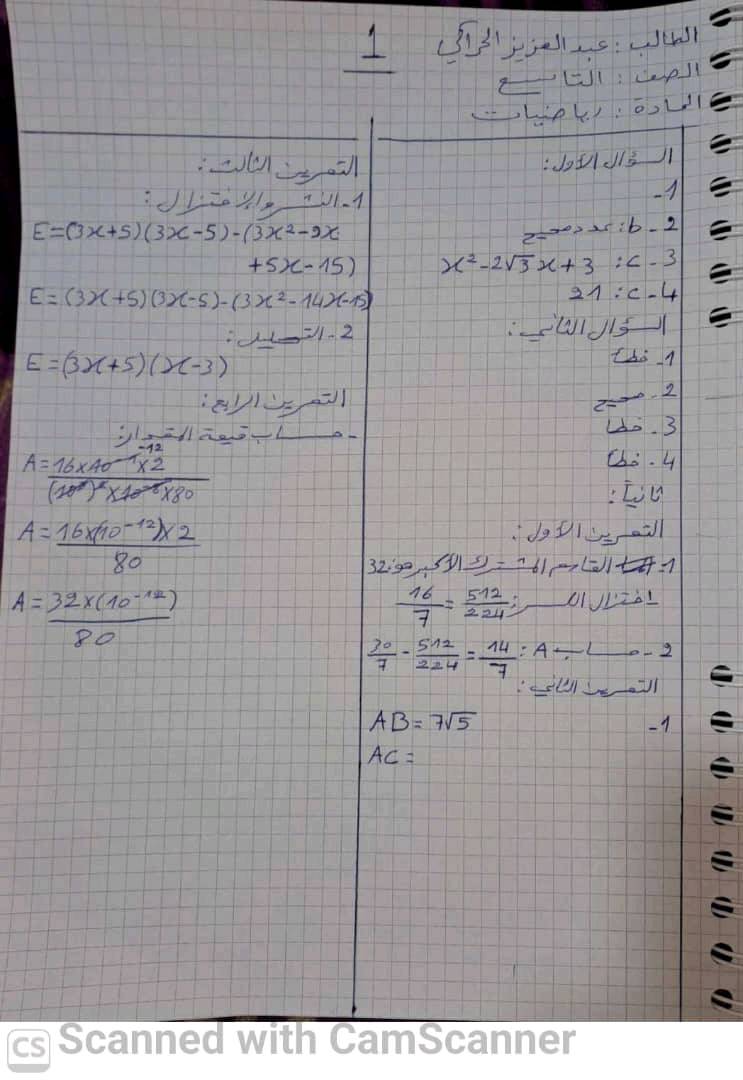 1
الطالب : عبد العزيز الحراكي
الصف : التاسع
المادة : رياضيات
السؤال الأول :
1-
2- b : عدد صحيح
3- c : x² - 2√3 x + 3
4- c : 21
السؤال الثاني :
1- خطأ
2- صحيح
3- خطأ
4- خطأ
ثانياً :
التمرين الأول :
1- القاسم المشترك الأكبر هو 32
اختزال الكسر : 512/224 = 16/7
2- حساب A : 30/7 - 512/224 = 14/7
التمرين الثاني :
1- AB = 7√5
AC =
التمرين الثالث :
1- النشر والإختزال :
E = (3x+5)(3x-5) - (3x² - 9x
+5x - 15)
E = (3x+5)(3x-5) - (3x² - 14x - 15)
2- التحليل :
E = (3x+5)(x-3)
التمرين الرابع :
- حساب قيمة المقدار :
-12
A = 16 x 10 x 2
x 80
A = 16 x (10⁻¹²) x 2
80
A = 32 x (10⁻¹²)
80
CS Scanned with CamScanner